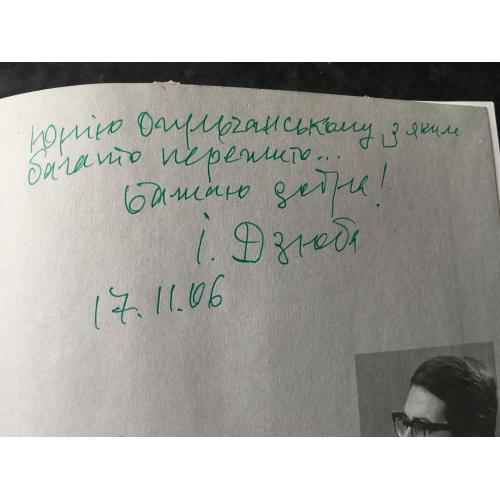 Юлію Олульчанському, з яким
багато пережито...
Бажаю добра!
І. Дзюба
17.11.06